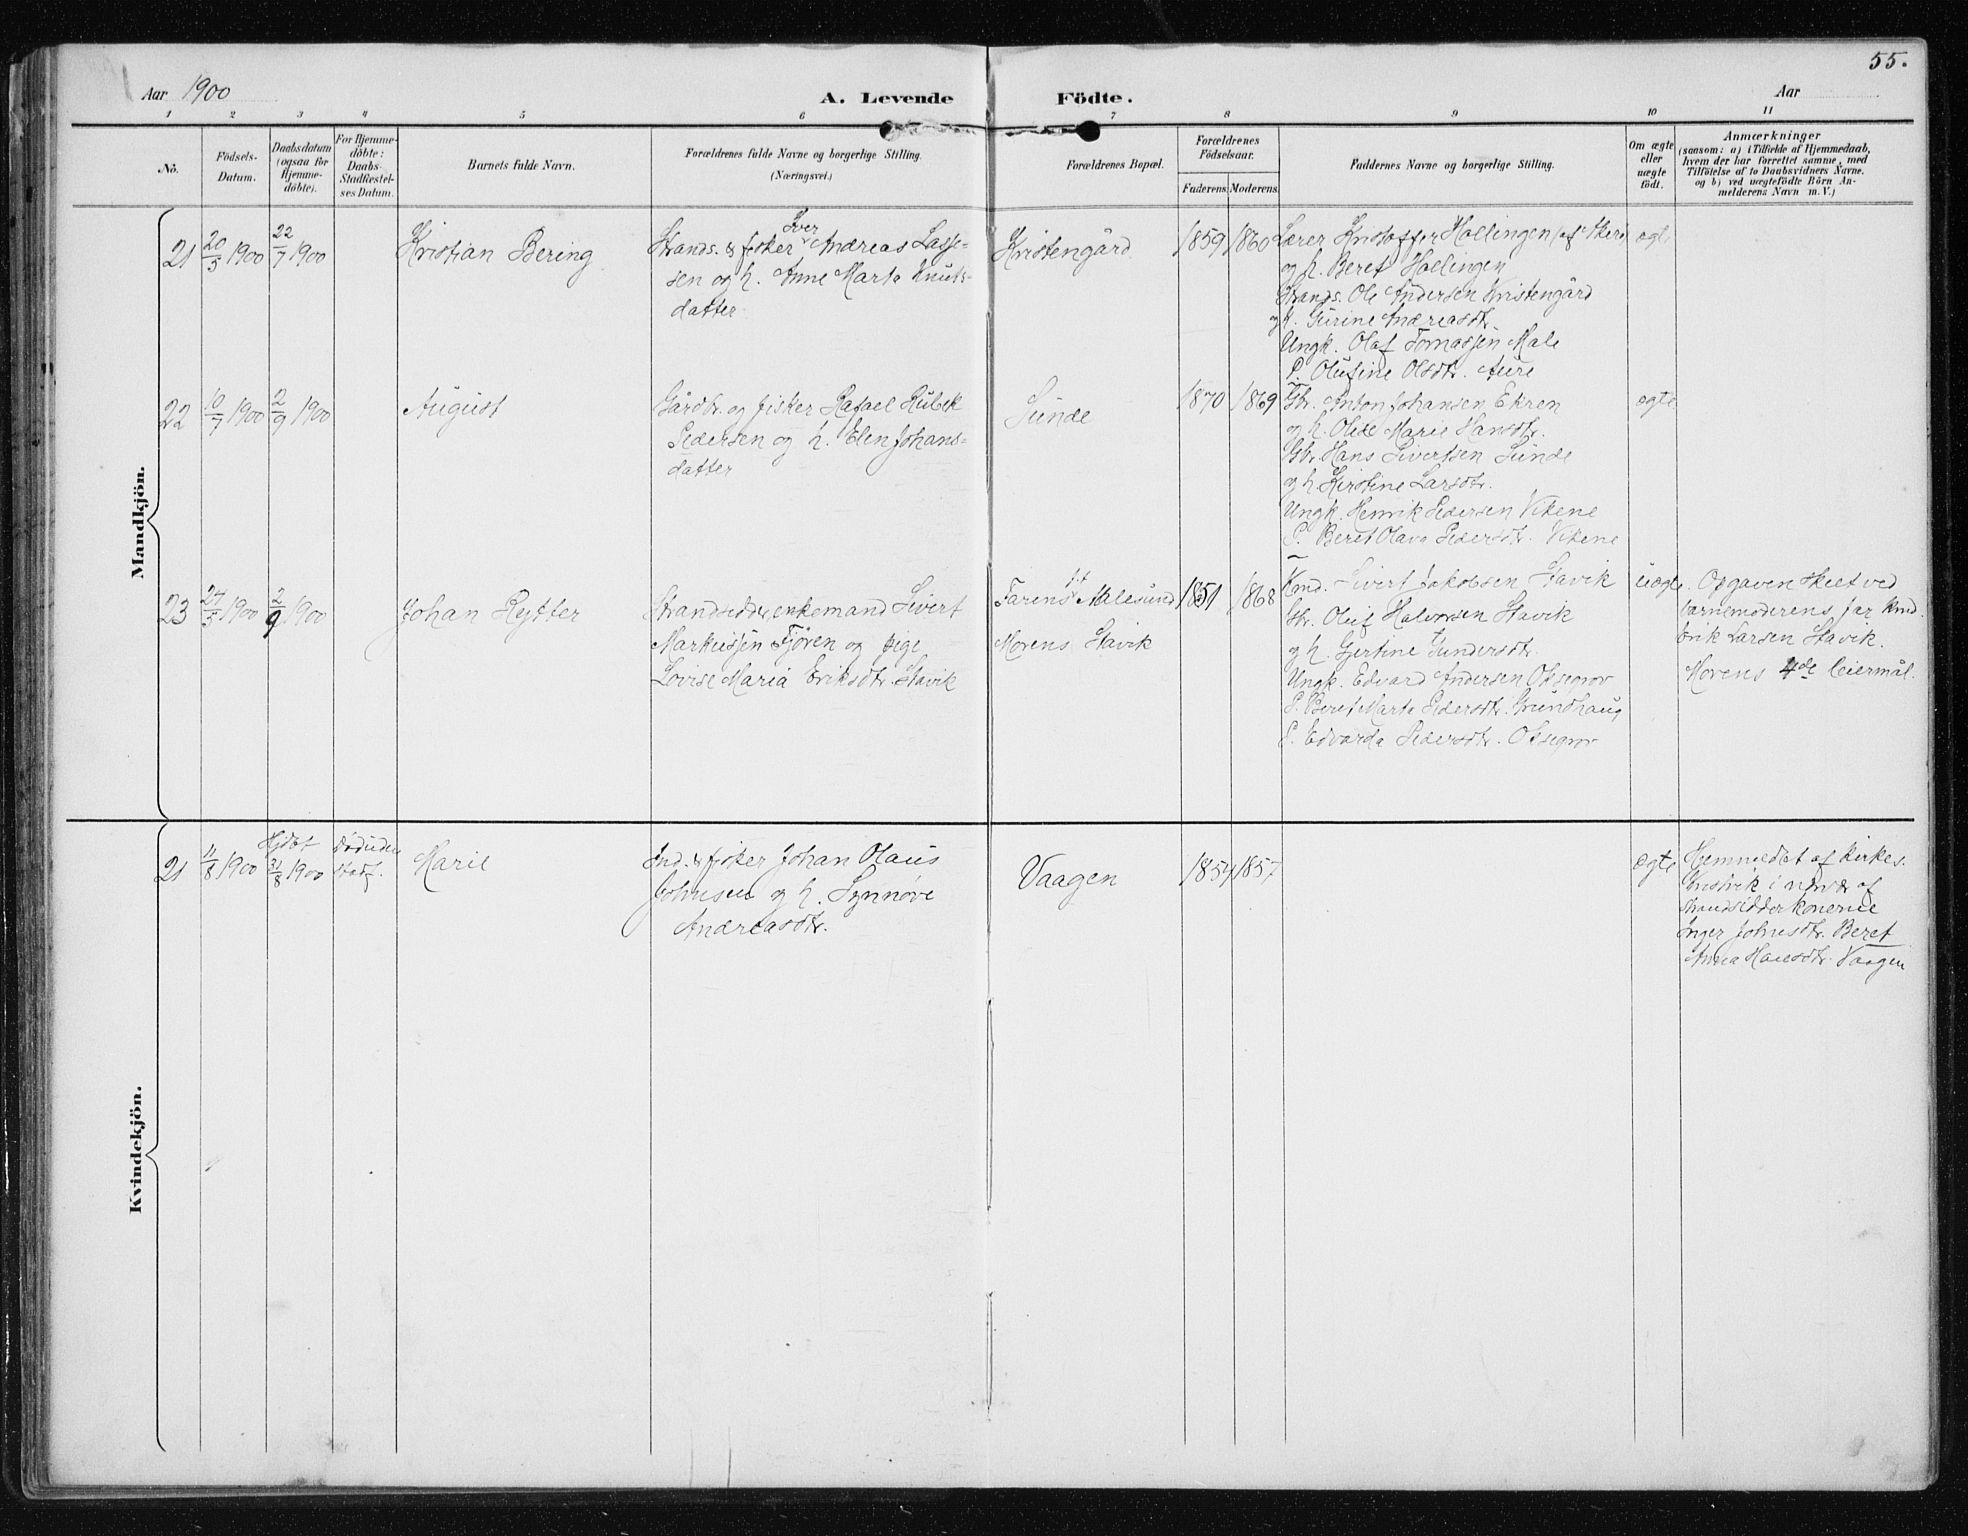 55.
Aar 1900
A. Levende Födte.
Aar
1 2 3 4 5 6 7 8 9 10 11
No.
Födsels-
Datum.
Daabsdatum
(ogsaa for
Hjemme-
döbte).
For Hjemme-
döbte:
Daabs-
Stadfæstel-
ses Datum.
Barnets fulde Navn.
Forældrenes fulde Navne og borgerlige Stilling.
(Næringsvei.)
Forældrenes Bopæl.
Forældrenes
Födselsaar.
Faderens. Moderens.
Faddernes Navne og borgerlige Stilling.
Om ægte
eller
uægte
födt.
Anmærkninger
(saasom: a) i Tilfælde af Hjemmedaab,
hvem der har forrettet samme, med
Tilföielse af to Daabsvidners Navne,
og b) ved uægtefödte Börn An-
melderens Navn m. V.)
Mandkjön.
21 20/5 1900 22/7 1900
Kristian Bering
Iver
Strands. & fisker Andreas Lasse-
sen og h. Anne Marta Knuts-
datter
Kristengård
1859 1860
Lærer Kristoffer Hallingen
og h. Beret Hallingen
Strands. Ole Andersen Kristengård
og h. Gurine Andreasdtr.
Ungk. Olaf Tomassen Male
P. Olufine Olsdtr. Aure
ægte
22 10/7 1900 2/9 1900
August
Gårdbr. og fisker Rafael Rubek
Pedersen og h. Elen Johans-
datter
Sunde
1870 1869
Gbr. Anton Johansen Ekren
og h. Olise Marie Hansdtr.
Gbr. Hans Sivertsen Sunde
og h. Kirstine Larsdtr.
Ungk. Henrik Pedersen Vikene
P. Beret Olava Pedersdtr. Vikene
ægte
23 24/5 1900 2/9 1900
Johan Rytter
Strandsidder, enkemand Sivert
Markussen Fjören og pige
Lovise Maria Eriksdtr. Stavik
Farens Aalesund
Morens Stavik
1851 1868
Kmd. Sivert Jakobsen Stavik
Gbr. Oluf Halvorsen Stavik
og h. Gjertine Gundersdtr.
Ungk. Edvard Andersen Oksegrov
P. Beret Marta Pedersdtr. Grundhaug
P. Edvarda Pedersdtr. Oksegrov
uægte
Opgaven skeet ved
barnemoderens far Kmd.
Erik Larsen Stavik.
Morens 4de leiermål.
Kvindekjön.
21 11/8 1900
Hjdbt
31/8 1900
Død uden
stadf.
Marie
Ind. & fisker Johan Olaus
Johnsen og h. Synnöve
Andreasdtr.
Vaagen
1854 1857
ægte
Hjemmedöbt af Kirkes.
i nærvær af
strandsidderkonerne
Inger Johnsdtr. Beret
Anna Hansdtr. Vaagen